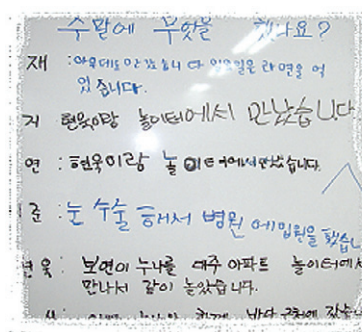 주말에 무엇을 했나요?
재 : 아무데도 만 니다 일요일은 라면을 먹
었습니다.
지 현욱이랑 놀이터에서 만났습니다.
연 : 현욱이랑 놀이터에서 만났습니다.
준 : 눈 수술 해서 병원에 입원을 했습니
현욱 : 보연이 누나를 대주 아파트 놀이터에서
만나서 같이 놀았습니다.
바다 갔습